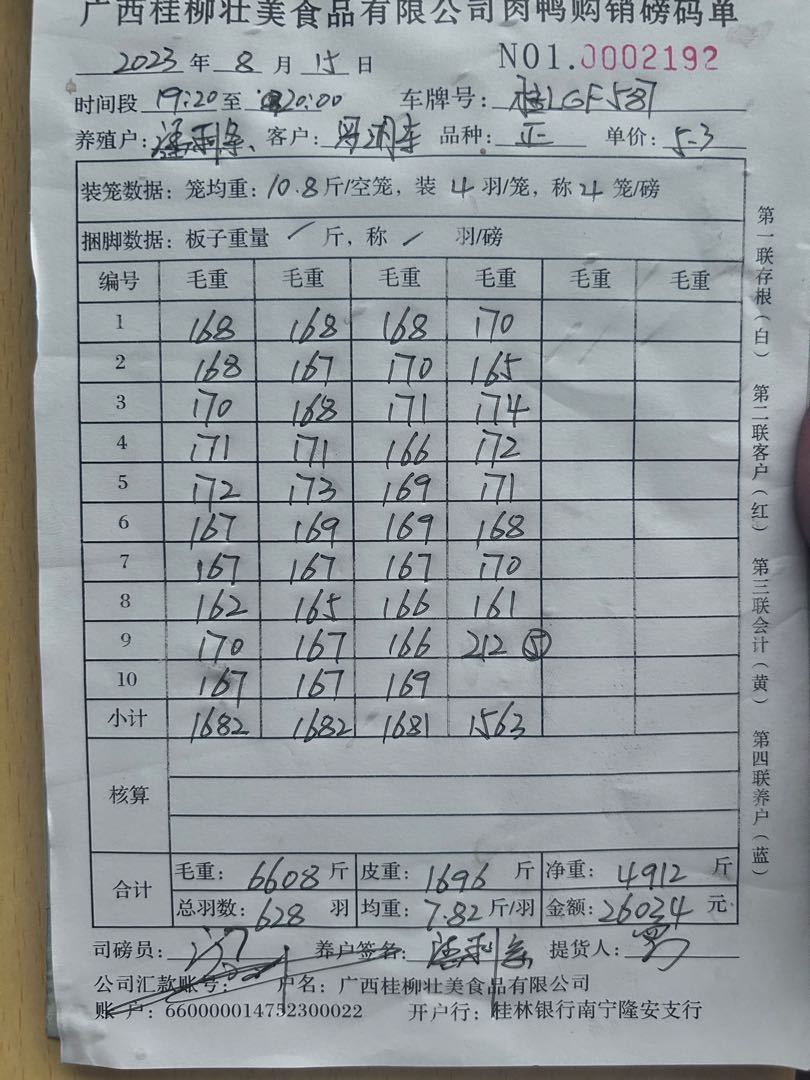 广西桂柳壮美食品有限公司肉鸭购销磅码单
2023 年 8 月 15 日 NO1.0002192
时间段 19:20 至 20:00 车牌号:
养殖户: 客户: 品种: 正 单价: 5.3
装笼数据: 笼均重: 10.8 斤/空笼, 装 4 羽/笼, 称 4 笼/磅
捆脚数据: 板子重量 / 斤, 称 / 羽/磅
编号 毛重 毛重 毛重 毛重 毛重 毛重
1 168 168 168 170
2 168 167 170 165
3 170 168 171 174
4 171 171 166 172
5 172 173 169 171
6 167 169 169 168
7 167 167 167 170
8 162 165 166 161
9 170 167 166 212 ⑤
10 167 167 169
小计 1682 1682 1681 1563
核算
合计 毛重: 6608 斤 皮重: 1696 斤 净重: 4912 斤
总羽数: 628 羽 均重: 7.82 斤/羽 金额: 26034 元
司磅员: 养户签名: 提货人:
公司汇款账号: 户名: 广西桂柳壮美食品有限公司
账 户: 660000014752300022 开户行: 桂林银行南宁隆安支行
第一联存根(白) 第二联客户(红) 第三联会计(黄) 第四联养户(蓝)